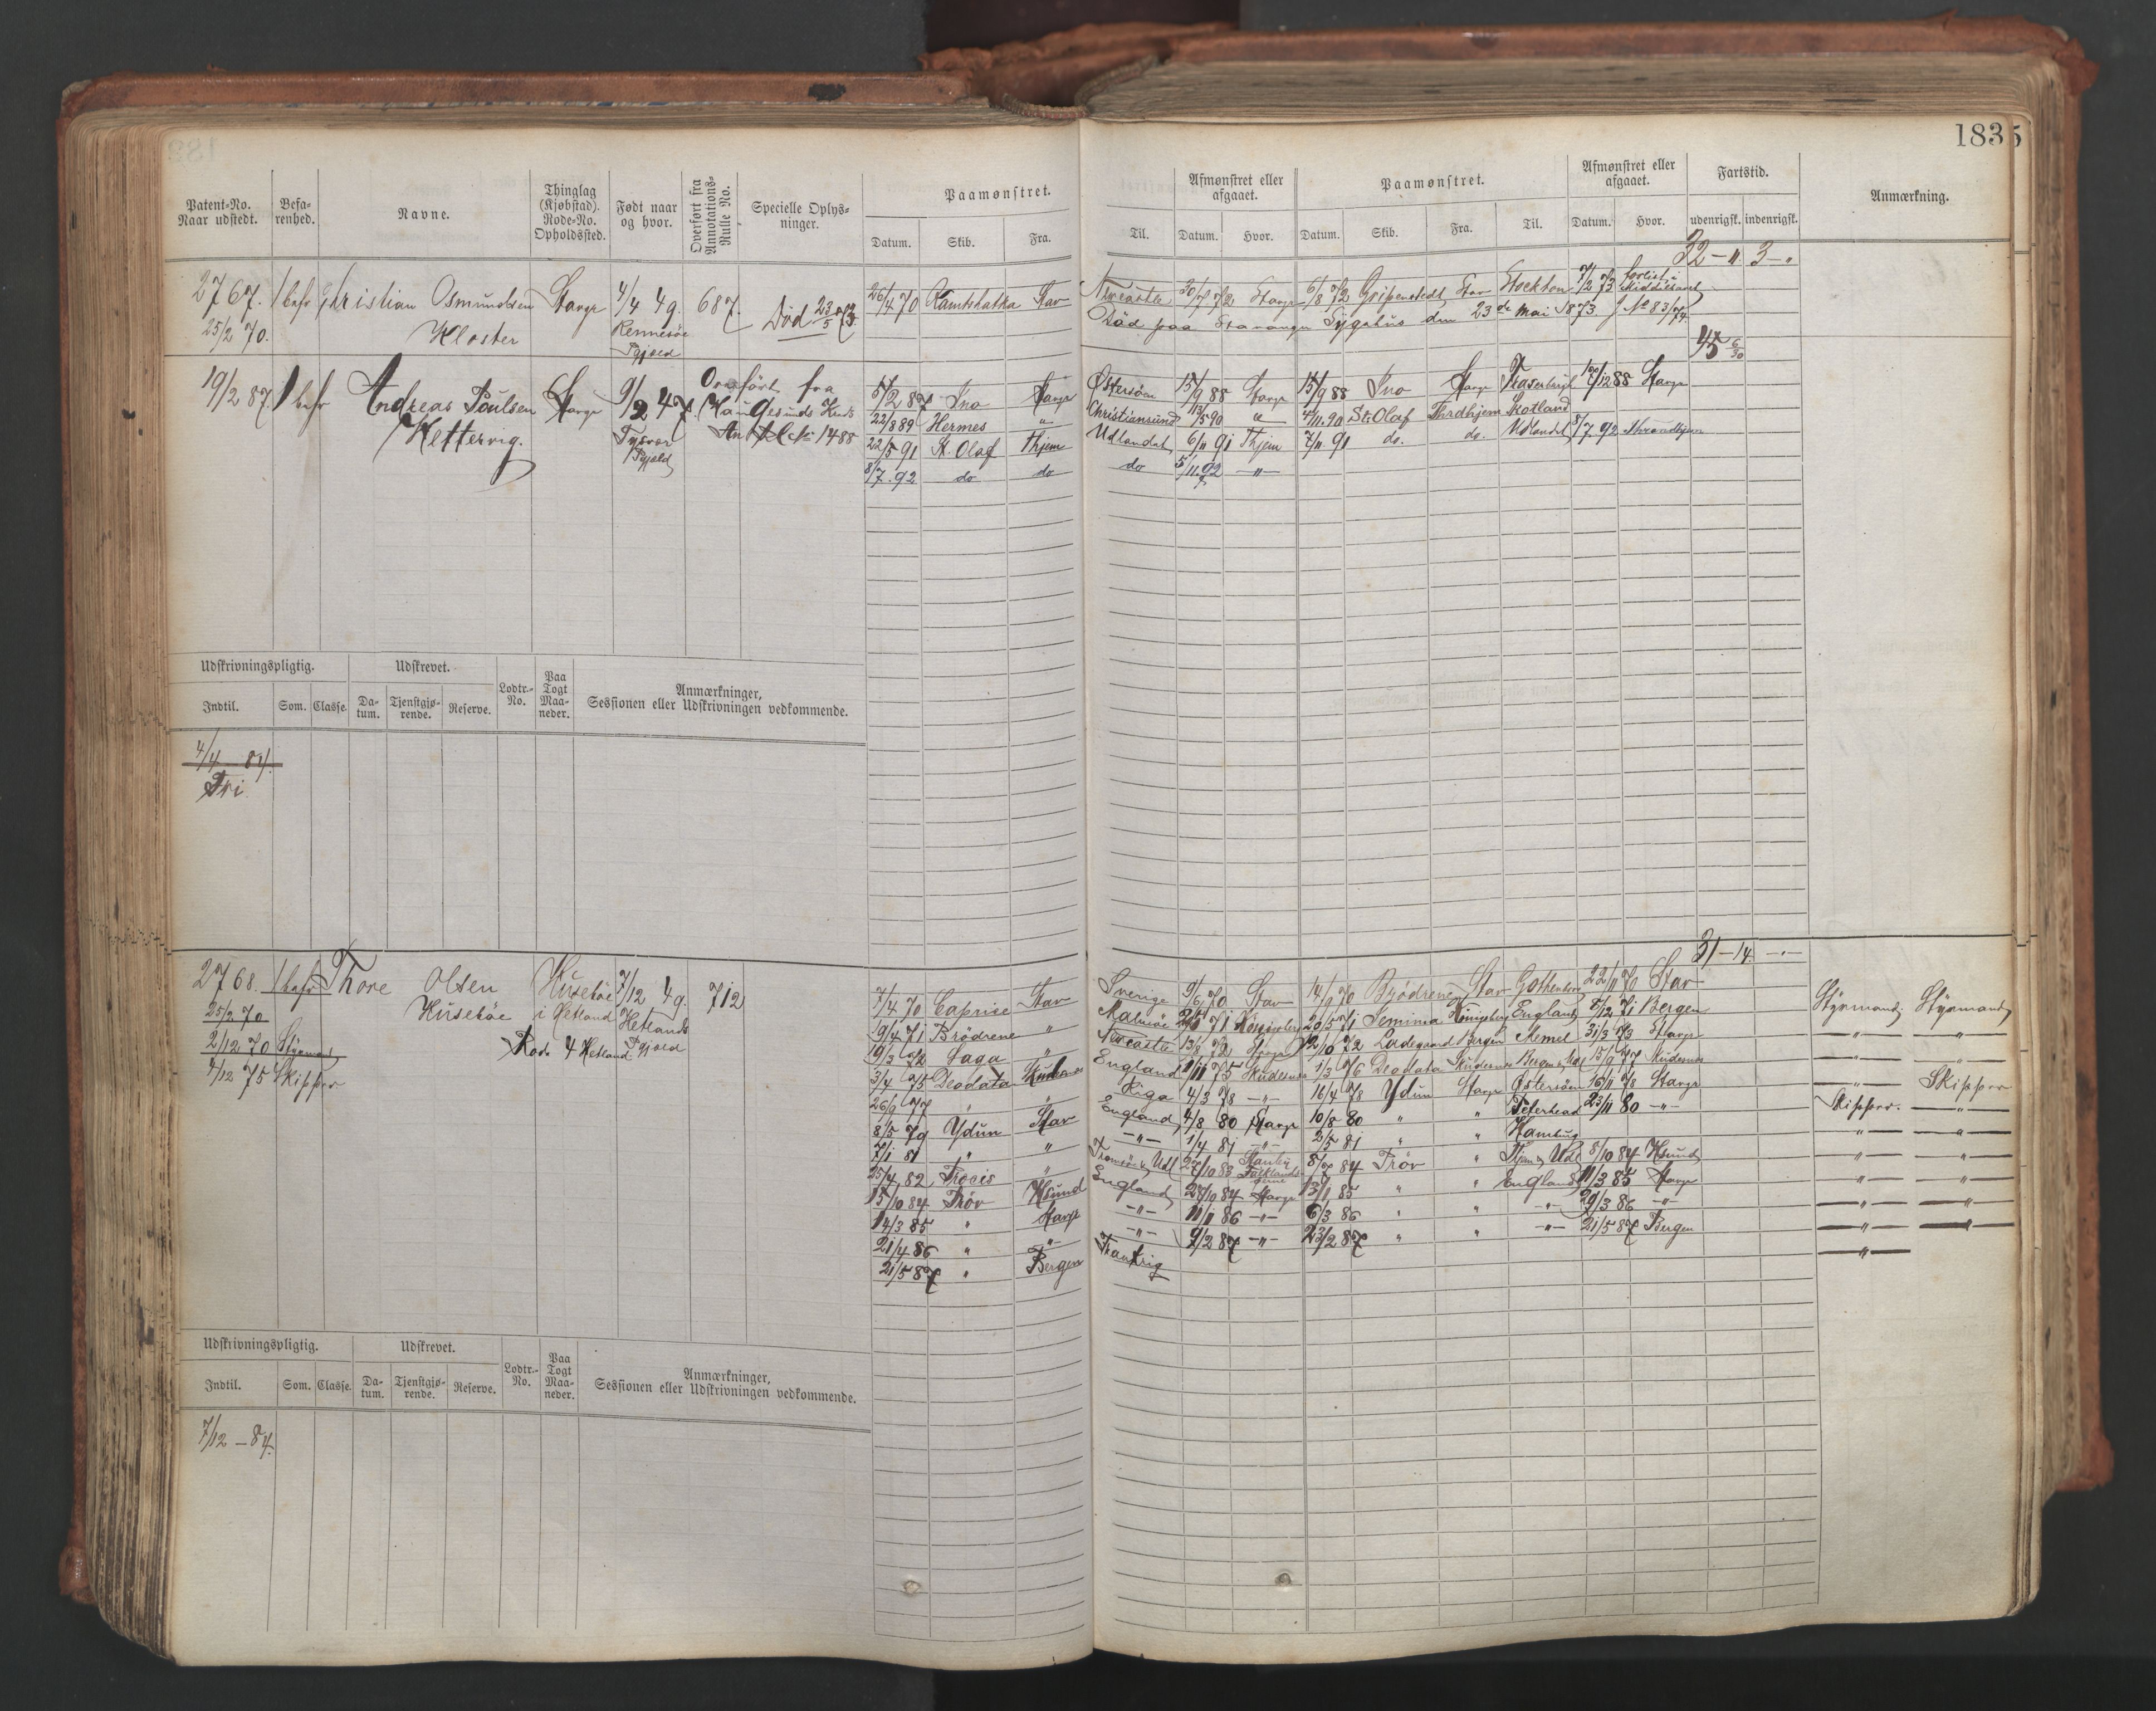 1835
Patent-No. Naar udstedt.
Befarenhed.
Navne.
Thinglag (Kjøbstad). Rode-No. Opholdssted.
Født naar og hvor.
Overført fra Annotations-Rulle No.
Specielle Oplysninger.
Paamønstret.
Datum. Skib. Fra.
Til.
Afmønstret eller afgaaet.
Datum. Hvor.
Paamønstret.
Datum. Skib. Fra. Til.
Afmønstret eller afgaaet.
Datum. Hvor.
Fartstid.
udenrigsk. indenrigsk.
Anmærkning.
32 — " 3 — "
2767. 1 befr Christian Osmundsen Stavgr 4/4 49. 687. Død 23/5 73. 26/4 70 Kamtschatka Stav Newcastle 30/7 72 Stavgr 6/8 72 Gripenstedt Stav Stockton 7/2 73
25/2 70. Kloster Rennesöe Død paa Stavanger Sygehus den 23de Mai 1873. J No 83/74.
Pgjæld
45 6/30
19/2 87 1 befr Andreas Poulsen Stavgr 9/2 47. Overført fra 5/2 87 Ino Stavgr Østersøen 15/9 88 Stavgr 15/9 88 Ino Stavgr Fraserburgh 7/12 88 Stavgr
Hettervig. Haugesunds Kreds 22/8 89 Hermes " Christiansund 13/5 90 " 4/11 90 St. Olaf Thrdhjem Skotland
Tysvær No 1488 22/5 91 St. Olaf Thjem Udlandet 6/11 91 Thjem 7/11 91 do. do. Udlandet 8/7 92 Throndhjem
Pgjæld 8/7 92 do do do 5/11 92 — " —
Udskrivningspligtig. Udskrevet. Lodtr.-No. Paa Togt Maaneder. Anmærkninger, Sessionen eller Udskrivningen vedkommende.
Indtil. Som. Classe. Datum. Tjenstgjørende. Reserve.
4/4 84.
Fri.
31 — 14 — " —
2768. 1 befr Thore Olsen Husebøe 7/12 49. 712
25/2 70 Husebøe i Hetland Hetlands
2/12 70 Styrmand Rode 4 Hetland Pgjæld
7/12 75 Skipper
7/4 70 Caprice Stav Sverige 9/6 70 Stav 14/9 70 Brødrene Stav Gothenborg 22/11 70 Stav
19/4 71 Brødrene " Malmöe 71 Königsberg 20/5 71 Jemima Königsberg England 8/12 71 Bergen Styrmand. Styrmand
19/3 72 Saga " Newcastle 13/8 72 Stavgr 12/10 72 Ladegaard Bergen Memel 31/3 73 Stavgr — " — — " —
3/4 75 Deodata Skudesnes England 1/11 75 Skudesnes 1/3 76 Deodata Skudesnes Bergen, Udl 15/9 Skudesnes — " — — " —
26/9 77 " " Riga 4/3 78 — " — 16/4 78 Ydun Stavgr Østersøen 16/11 78 Stavgr — " — Skipper
8/5 79 Ydun Stav England 4/8 80 Stavgr 10/8 80 " " Peterhead 23/11 80 — " — Skipper. — " —
7/1 81 " " — " — 1/4 81 — " — 2/5 81 " " Hamburg — " — — " —
25/4 82 " Tromsö & Udl 27/10 83 8/7 84 Prøv " Udl 8/10 84 Hsund — " — — " —
15/10 84 Prøv Hsund England 28/10 84 Stavgr 13/1 85 " " England 11/3 85 Stavgr — " — — " —
14/3 85 " Stavgr — " — 11/1 86 — " — 6/3 86 " " — " — 29/3 86 — " — — " — — " —
21/4 86 " — " — — " — 9/2 87 — " — 23/2 87 " " — " — 21/5 87 Bergen — " — — " —
21/5 87 " Bergen Frankrig — " —
Udskrivningspligtig. Udskrevet. Lodtr.-No. Paa Togt Maaneder. Anmærkninger, Sessionen eller Udskrivningen vedkommende.
Indtil. Som. Classe. Datum. Tjenstgjørende. Reserve.
7/12 — 84.